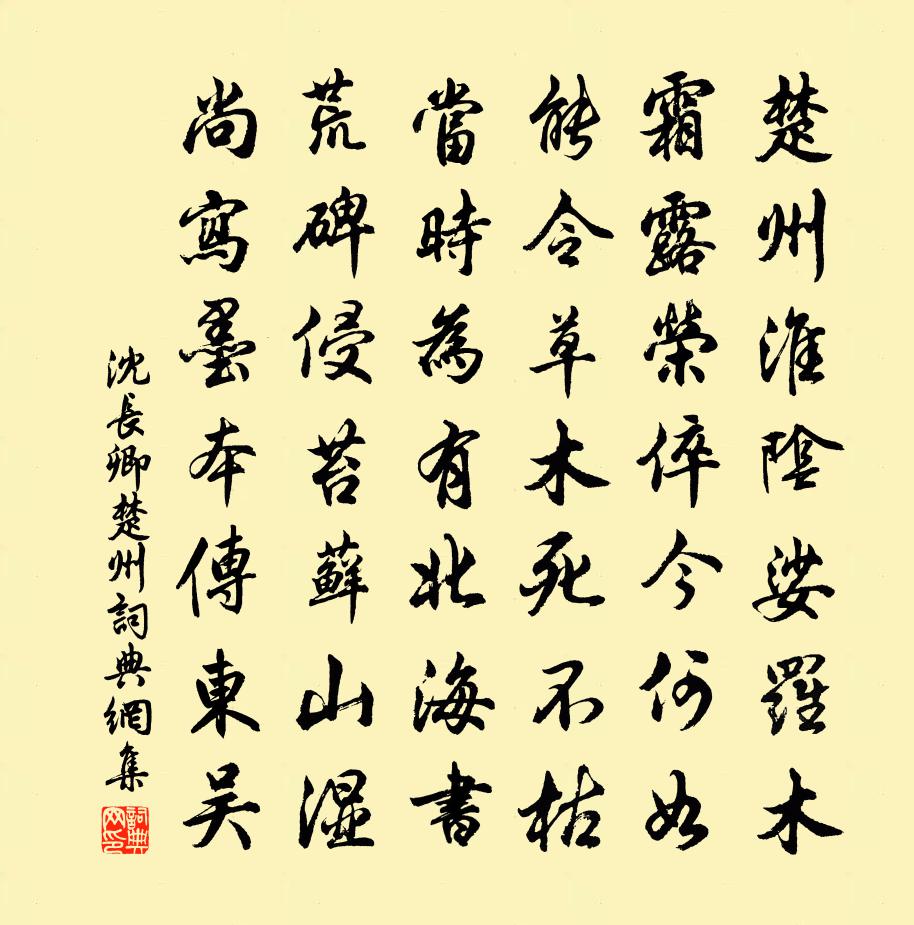 楚州淮陰娑羅木
霜露榮倅今何如
能令草木死不枯
當時為有北海書
荒碑侵苔蘚山湿
尚寫墨本傳東吴
沈長卿楚州詞典網集
詞典网印